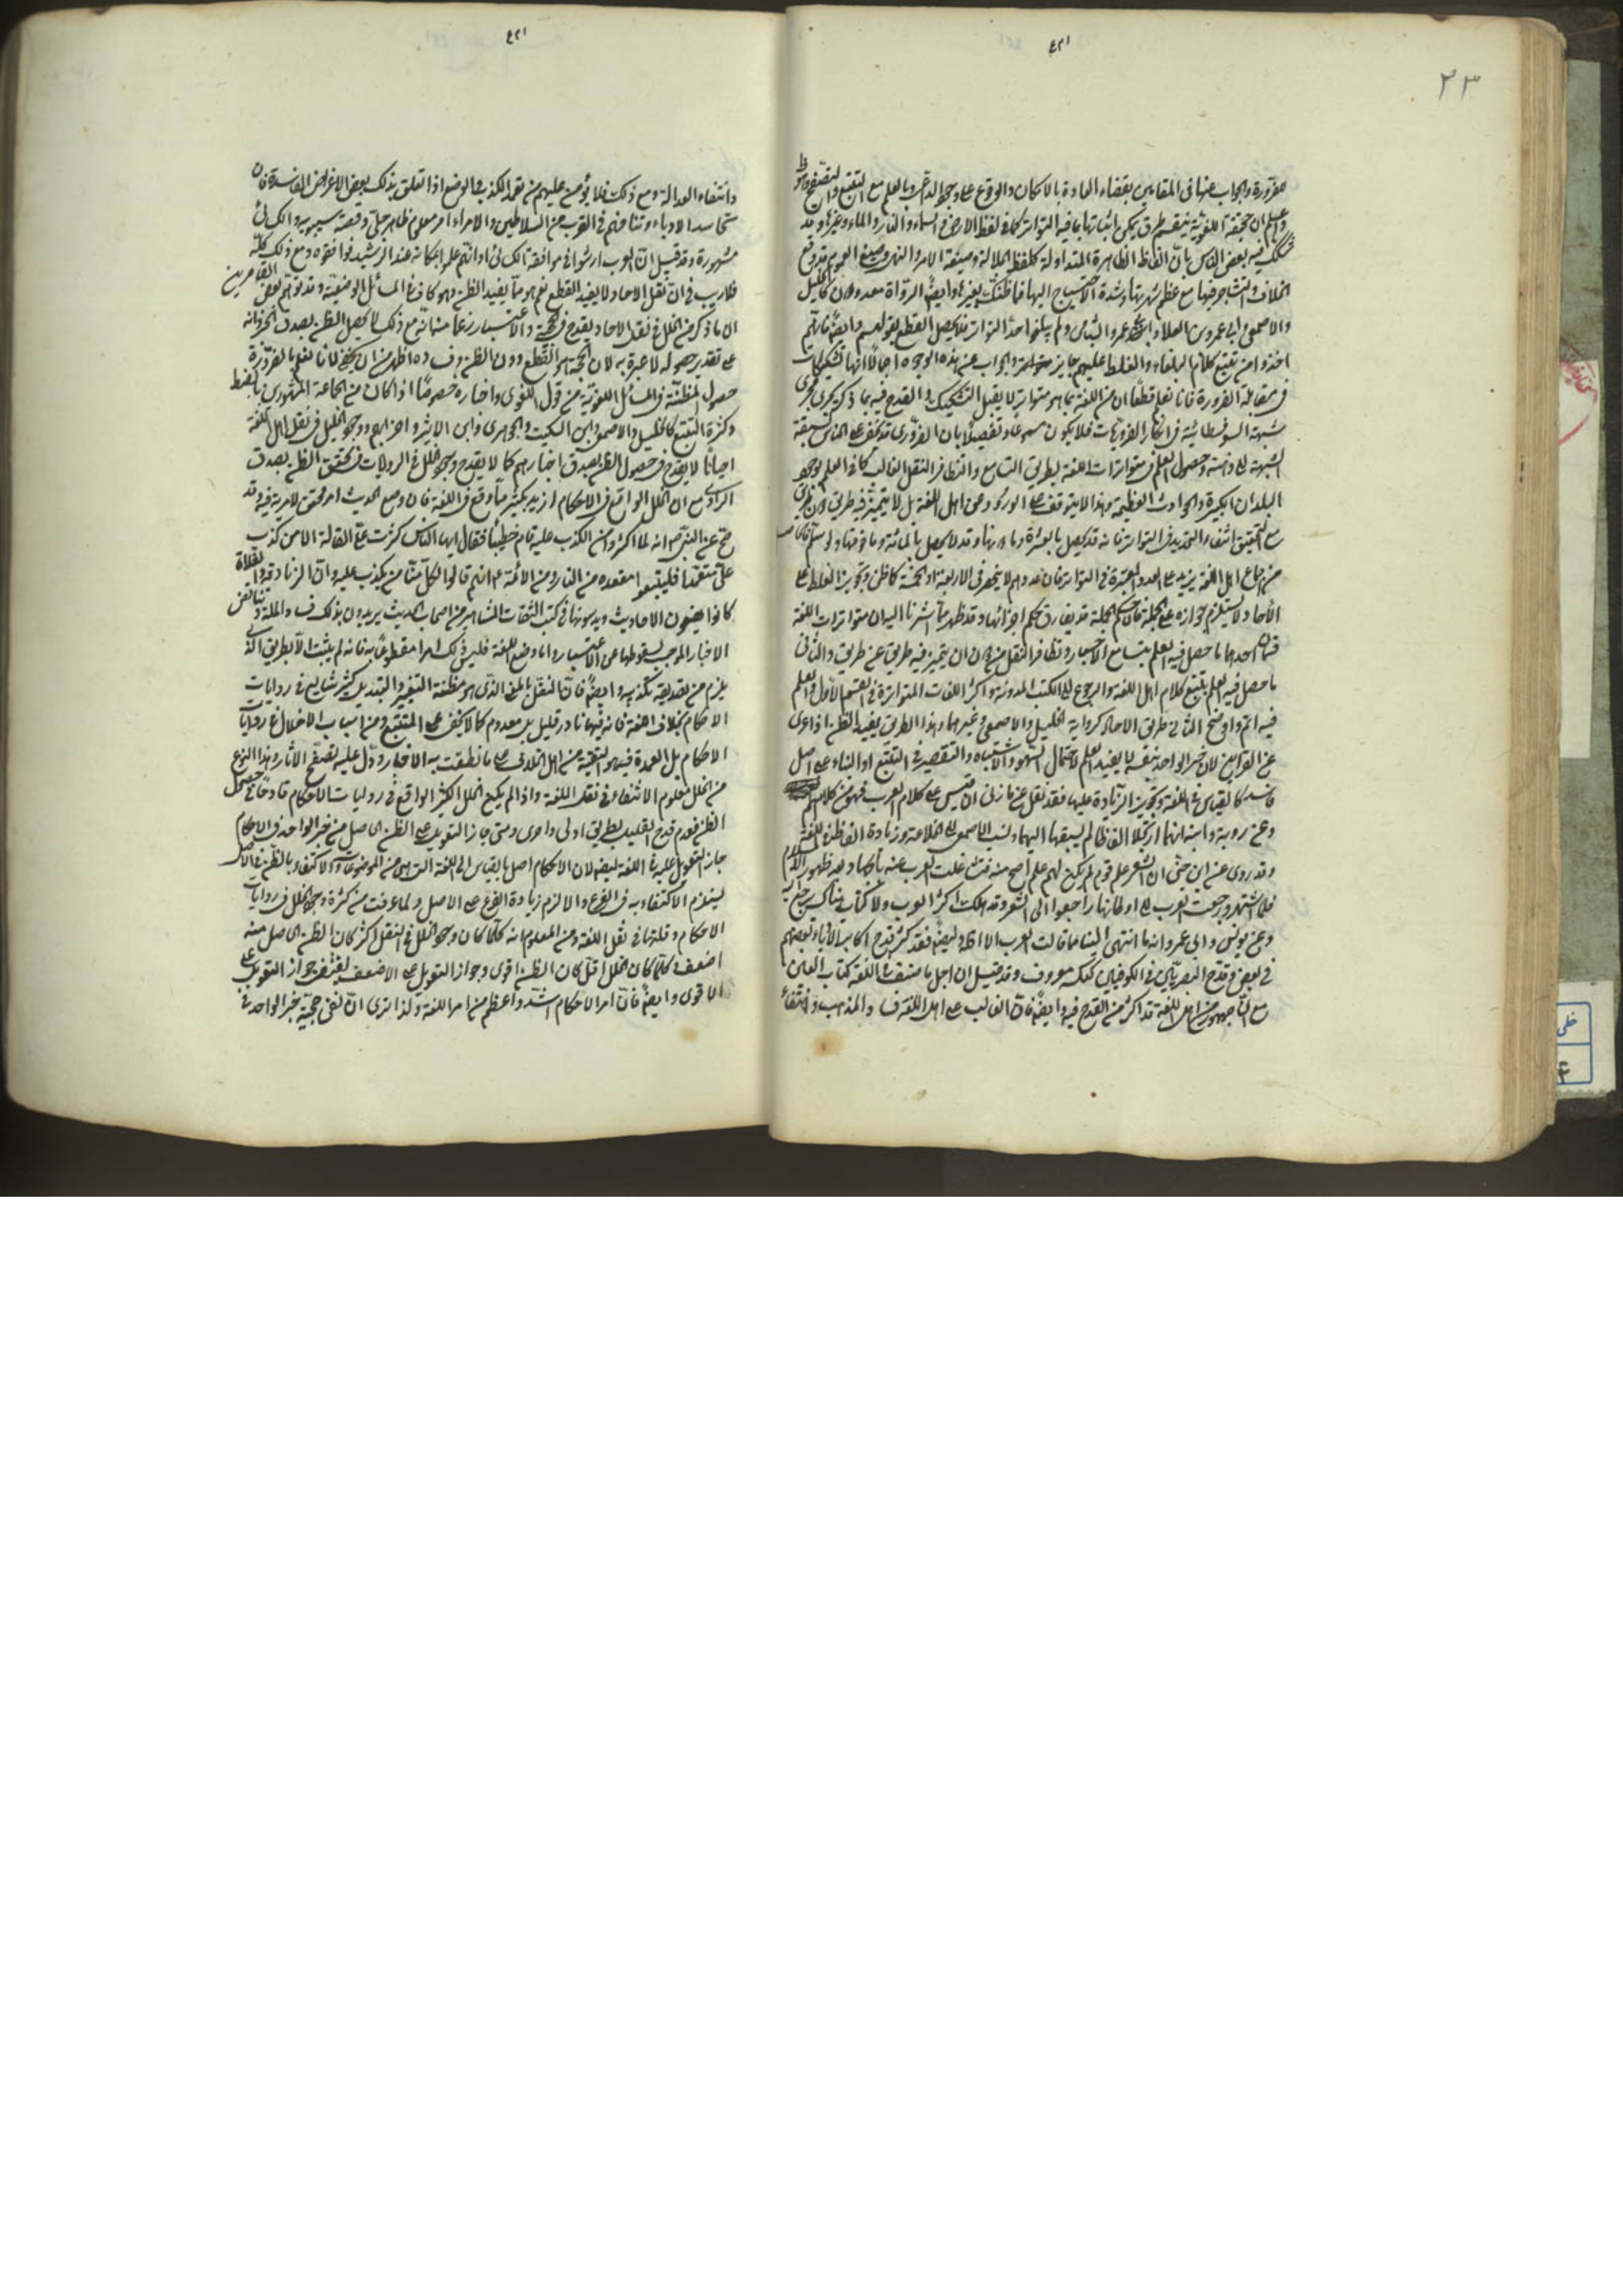 ٣٣
١٢٤
ضرورة والجواب عنها في المقامين بقضاء العادة بالامكان والوقوع على وجه والعلم مع التتبع والتصفح
واعلم ان حجية اللغوية طرق يمكن اثباتها بما فيه التواتر كما في لفظ الارض والسماء والنار والماء وغيرها وقد
شكك فيه بعض الناس بان الفاظ الظاهرة المتداولة كلفظ الجلالة وصيغة الامر والنهي وصيغ العموم قد وقع
الخلاف والتشاجر فيها مع عظم شهرتها وشدة الاحتياج اليها فما ظنك بغيرها وايضا الرواة معدودون كالخليل
والاصمعي وابي عمرو بن العلاء وابي عمرو الشيباني ولم يبلغوا حد التواتر فلا يحصل القطع بقولهم وايضا فانهم
اخذوا من تتبع كلام البلغاء والغلط عليهم جايز والجواب عن هذه الوجوه اجمالا انها تشكيكات
في مقابلة الضرورة فانا نعلم قطعا ان من اللغة ما هو متواتر لا يقبل التشكيك والقدح فيه بما ذكر يجري مجرى
شبهة السوفسطائية في انكار الضروريات فلا يكون مسموعا وتفصيلا بان الضروري قد يخفى على الناس لسبقة
الشبهة الى ذهنه وحصول العلم في متواترات اللغة بطريق التسامع والتظافر النقل الغالب كما في العلم بوجود
البلدان الكبيرة والحوادث العظيمة وهذا لا يتوقف على الورود من اهل اللغة بل لا يتميز فيه طريق
مع تحقيق انتفاء التحديد في التواتر فانه قد يحصل بالعشرة وما دونها وقد لا يحصل بالمائة وما فوقها ولو سلم
من اجماع اهل اللغة يزيد على العدد المعتبرة في التواتر فان عددهم لا ينحصر في الاربعة او الخمسة كما ظن وتجويز الغلط على
الآحاد لا يستلزم جوازه على الجملة فان حكم الجملة قد يفارق حكم اجزائها وقد ظهر مما اشرنا اليه ان متواترات اللغة
قسمان احدهما ما حصل فيه العلم بتسامع الاخبار وتظافر النقل من دون ان يتميز فيه طريق عن طريق والثاني
ما حصل فيه العلم بتتبع كلام اهل اللغة والرجوع الى الكتب المدونة واكثر اللغات المتواترة في القسم الاول والعلم
فيه اتم واوضح الثاني طريق الآحاد كرواية الخليل والاصمعي وغيرهما وهذا الطريق يفيد الظن اذا عرى
عن القراين لان خبر الواحد بنفسه لا يفيد العلم لاحتمال السهو والاشتباه والتقصير في التتبع او البناء على اصل
فاسد كالقياس في اللغة وتجويز الزيادة عليها فقد نقل عن مازني ان ما قيس على كلام العرب فهو من كلامهم
وعن روبة وابنه انهما ارتجلا الفاظا لم يسبقها اليهما ونسب الاصمعي الى الخلاعة وزيادة الفاظ في اللغة
وقد روى عن ابن جني ان الشعر علم قوم لم يكن لهم علم اصح منه فتشاغلت العرب عنه بالجهاد بعد ظهور الاسلام
فلما اشتهر ورجعت العرب الى اوطانها راجعوا الى الشعر وقد هلك اكثر العرب ولا كتاب هناك يرجع اليه
وعن يونس وابي عمرو انه ما انتهى الينا مما قالت العرب الا اقله وايضا فقد كثر قدح اكابر الادباء بعضهم
في بعض وقدح البصريين في الكوفيين كعكسه معروف وقد قيل ان اجل ما صنف في اللغة كتاب العين
مع ان جمهور من اهل اللغة قد اكثر من القدح فيه وايضا فان الغالب على اهل اللغة فساد المذهب وانتفاء
١٢٤
وانتفاء العدالة ومع ذلك فلا يؤمن عليهم من تعمد الكذب في الوضع اذا تعلق بذلك بعض الاغراض الفاسدة فان
تحاسد الادباء وتنافسهم في القرب من السلاطين والامراء امر معلوم ظاهر جلي وقصة سيبويه والكسائي
مشهورة وقد قيل ان العرب ارشوا في موافقة الكسائي او انهم علموا مكانه عند الرشيد فوافقوه ومع ذلك كله
فلا ريب في ان نقل الآحاد لا يفيد القطع نعم هو مما يفيد الظن وهو كاف في المسائل الوضعية وقد توهم بعض القاصرين
ان ما ذكر من الخلل في نقل الآحاد يقدح في الحجية والاعتبار زعما منه انه مع ذلك لا يحصل الظن بصدق الخبر وانه
على تقدير حصوله لا عبرة به لان الحجة هو القطع دون الظن وفساده اظهر من ان يخفى لانا نعلم بالضرورة
حصول المظنة في المسائل اللغوية من قول اللغوي واخباره خصوصا اذا كان من الجماعة المشهورين بالضبط
وكثرة التتبع كالخليل والاصمعي وابن السكيت والجوهري وابن الاثير واضرابهم ووجود الخلل في نقل اهل اللغة
احيانا لا يقدح في حصول الظن بصدق اخبارهم كما لا يقدح وجود الخلل في الروايات في تحقق الظن بصدق
الراوي مع ان الخلل الواقع في الاحكام ازيد بكثير مما وقع في اللغة فان وضع الحديث امر محقق لا مرية فيه وقد
صح عن النبي ص انه لما اكثروا من الكذب عليه قام خطيبا فقال ايها الناس كثرت علي القالة الا من كذب
علي متعمدا فليتبوء مقعده من النار وعن الائمة ع انهم قالوا لكل منا من يكذب عليه وان الزنادقة والغلاة
كانوا يضعون الاحاديث ويدسونها في كتب الثقات المشاهير من اصحاب الحديث يريدون بذلك فساد الملة وتناقض
الاخبار الموجب لسقوطها عن الاعتبار واما وضع اللغة فليس ذلك امرا مقطوعا به فانه لم يثبت الا بطريق الذي
يلزم من تصديقه تكذيبه وايضا فان النقل بالمعنى الذي هو مظنة التغيير والتبديل كثير شايع في روايات
الاحكام بخلاف اللغة فانه فيها نادر قليل بل معدوم كما لا يخفى على المتتبع ومن اسباب الاختلال في روايات
الاحكام بل العمدة فيه هو التقية من اهل الخلاف على ما نطقت به الاخبار ودل عليه تصفح الآثار وهذا النوع
من الخلل معلوم الانتفاء في نقل اللغة واذا لم يكن الخلل الكثير الواقع في روايات الاحكام قادحا في حصول
الظن فعدم قدح القليل بطريق اولى واحرى ومتى جاز التعويل على الظن الحاصل من خبر الواحد في الاحكام
جاز التعويل عليه في اللغة ايضا لان الاحكام اصل بالقياس الى اللغة التي هي من الموضوعات والاكتفاء بالظن في الاصل
يستلزم الاكتفاء به في الفرع والا لزم زيادة الفرع على الاصل ولما عرفت من كثرة وجود الخلل في روايات
الاحكام وقلتها في نقل اللغة ومن المعلوم انه كلما كان وجود الخلل في النقل اكثر كان الظن الحاصل منه
اضعف وكلما كان الخلل اقل كان الظن اقوى وجواز التعويل على الاضعف يقتضي جواز التعويل على
الاقوى وايضا فان امر الاحكام اشد واعظم من امر اللغة ولذا ترى ان نفى حجية خبر الواحد في